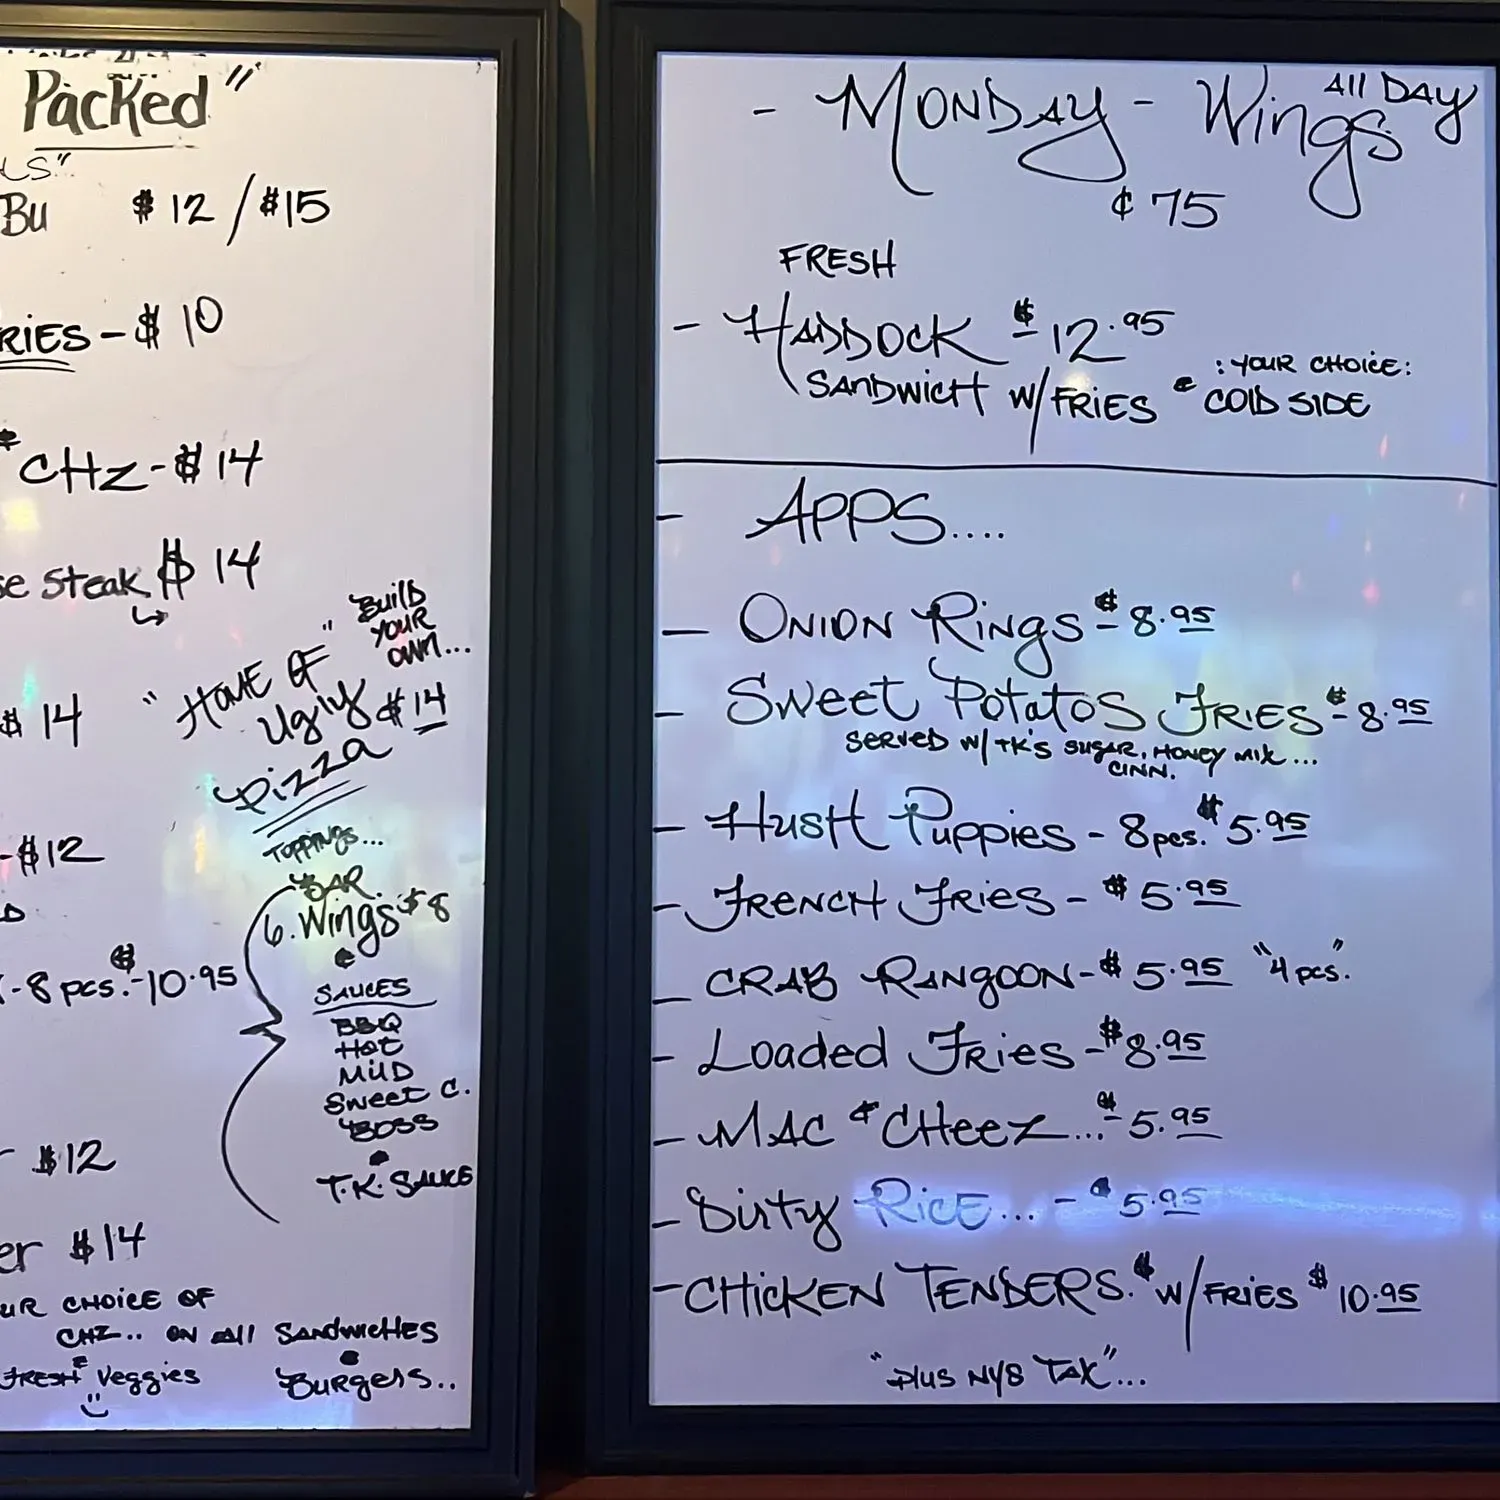 Packed"
LS"
Bu $12/$15
RIES - $10
& CHZ - $14
se Steak $14
"HOME OF"
Ugly
Pizza
Build
YOUR
OWN...
$14
$14
TOPPINGS...
BAR.
- $12
6. Wings $8
&
- 8 pcs. - $10.95
SAUCES
BBQ
Hot
MilD
Sweet C.
BOSS
&
T.K. SAUCE
$12
er $14
UR CHOICE OF
CHZ.. ON All SANDWICHES
FRESH & Veggies
& BURGERS..
- MONDAY - Wings All DAY
¢75
FRESH
- HADDOCK $12.95
SANDWICH W/FRIES & : YOUR CHOICE:
COLD SIDE
- APPS....
- ONION RINGS - $8.95
- SWEET POTATOS FRIES - $8.95
SERVED W/TK'S SUGAR, HONEY MIX...
CINN.
- HUSH PUPPIES - 8 pcs. $5.95
- FRENCH FRIES - $5.95
- CRAB RANGOON - $5.95 "4 pcs".
- Loaded FRIES - $8.95
- MAC & CHEEZ... - $5.95
- Dirty RICE... - $5.95
- CHICKEN TENDERS. W/FRIES $10.95
"Plus NYS TAX"...